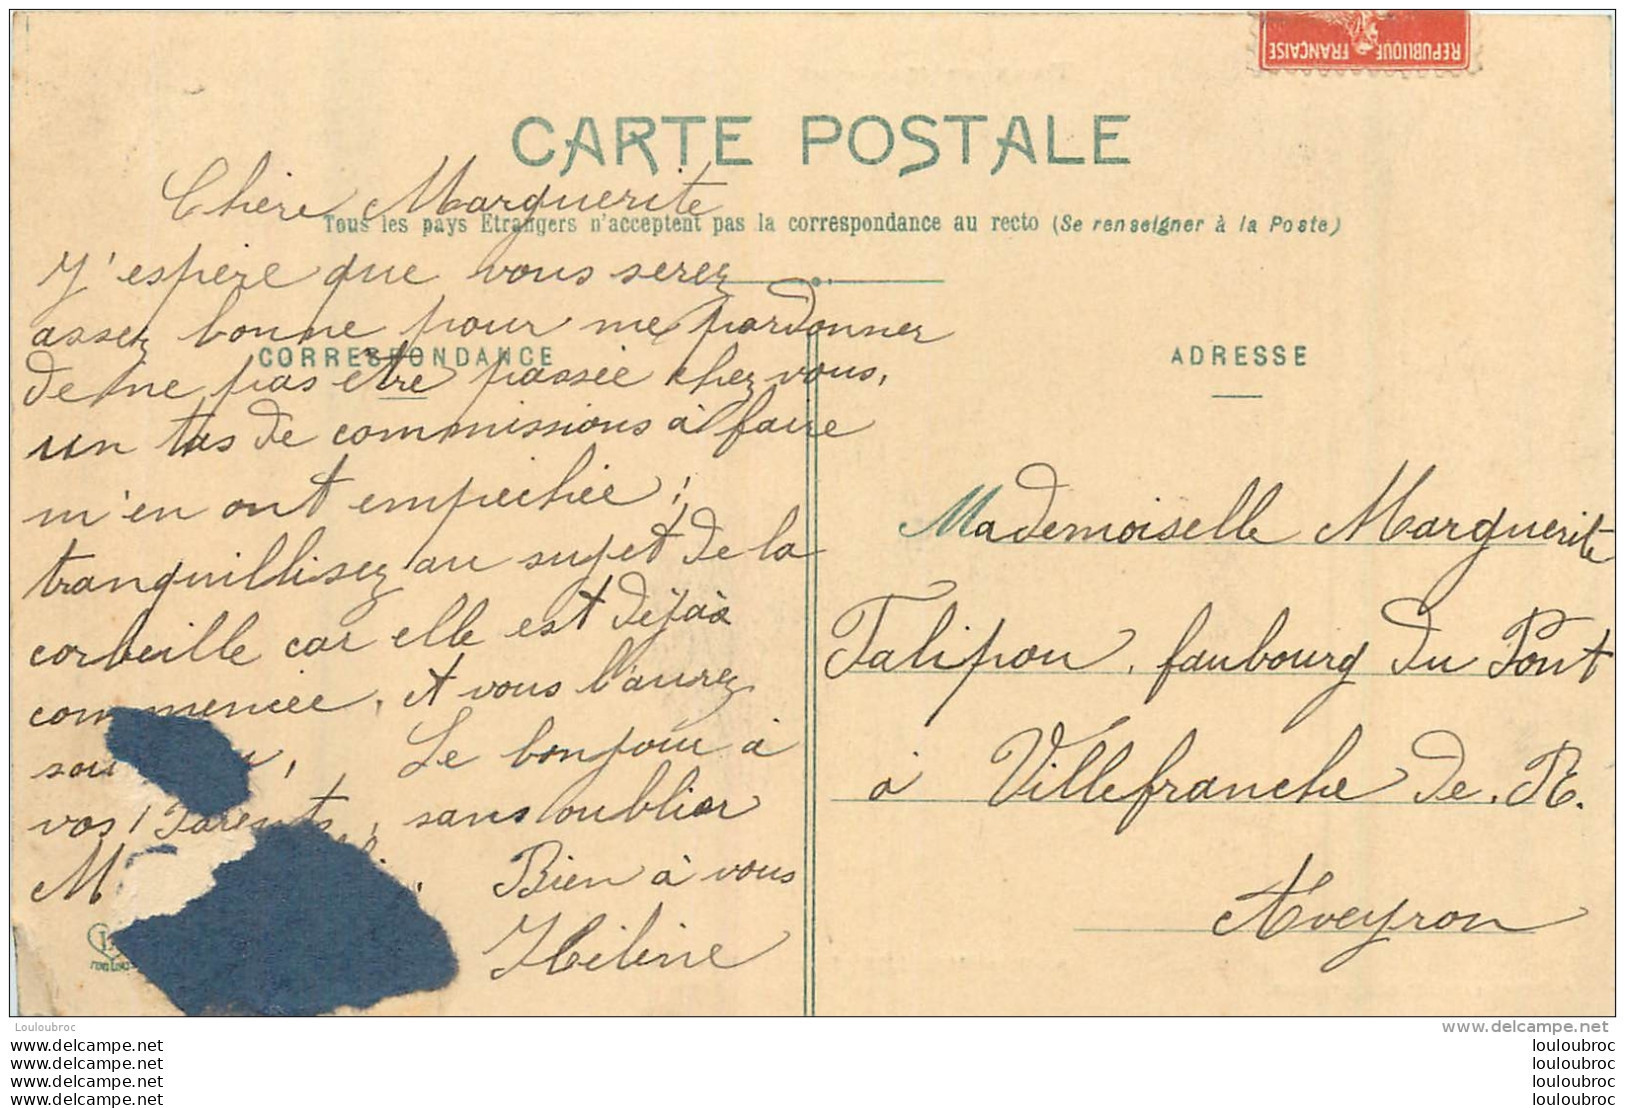 REPUBLIQUE FRANÇAISE
CARTE POSTALE
Tous les pays Etrangers n'acceptent pas la correspondance au recto (Se renseigner à la Poste)
CORRESPONDANCE
Chère Marguerite
J'espère que vous serez
assez bonne pour me pardonner
de ne pas etre passée chez vous,
un tas de commissions à faire
m'en ont empechée ;
tranquillisez au sujet de la
corbeille car elle est déjà
commencée, et vous l'aurez
Le bonjour à
vos Parents, sans oublier
M
Bien à vous
Hélène
ADRESSE
Mademoiselle Marguerite
Talipon, faubourg du Pont
à Villefranche de R.
Aveyron
Louloubroc
www.delcampe.net
louloubroc louloubroc
louloubroc louloubroc
louloubroc louloubroc
louloubroc louloubroc